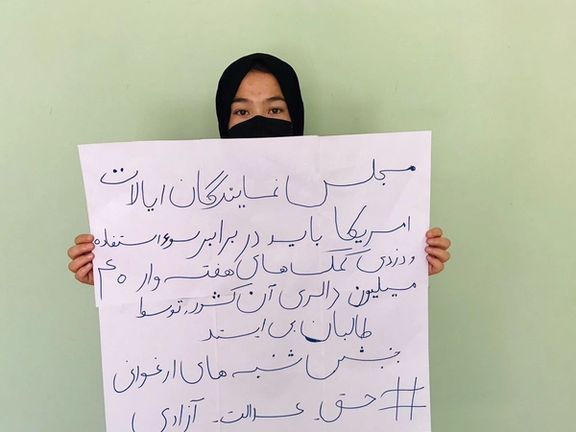 مجلس نمایندگان ایالات
امریکا باید در برابر سوء استفاده
و دزدی کمک های هفته وار ۴۰
میلیون دالری آن کشور توسط
طالبان بی ایستد
جنبش شنبه های ارغوانی
# حق_عدالت_آزادی